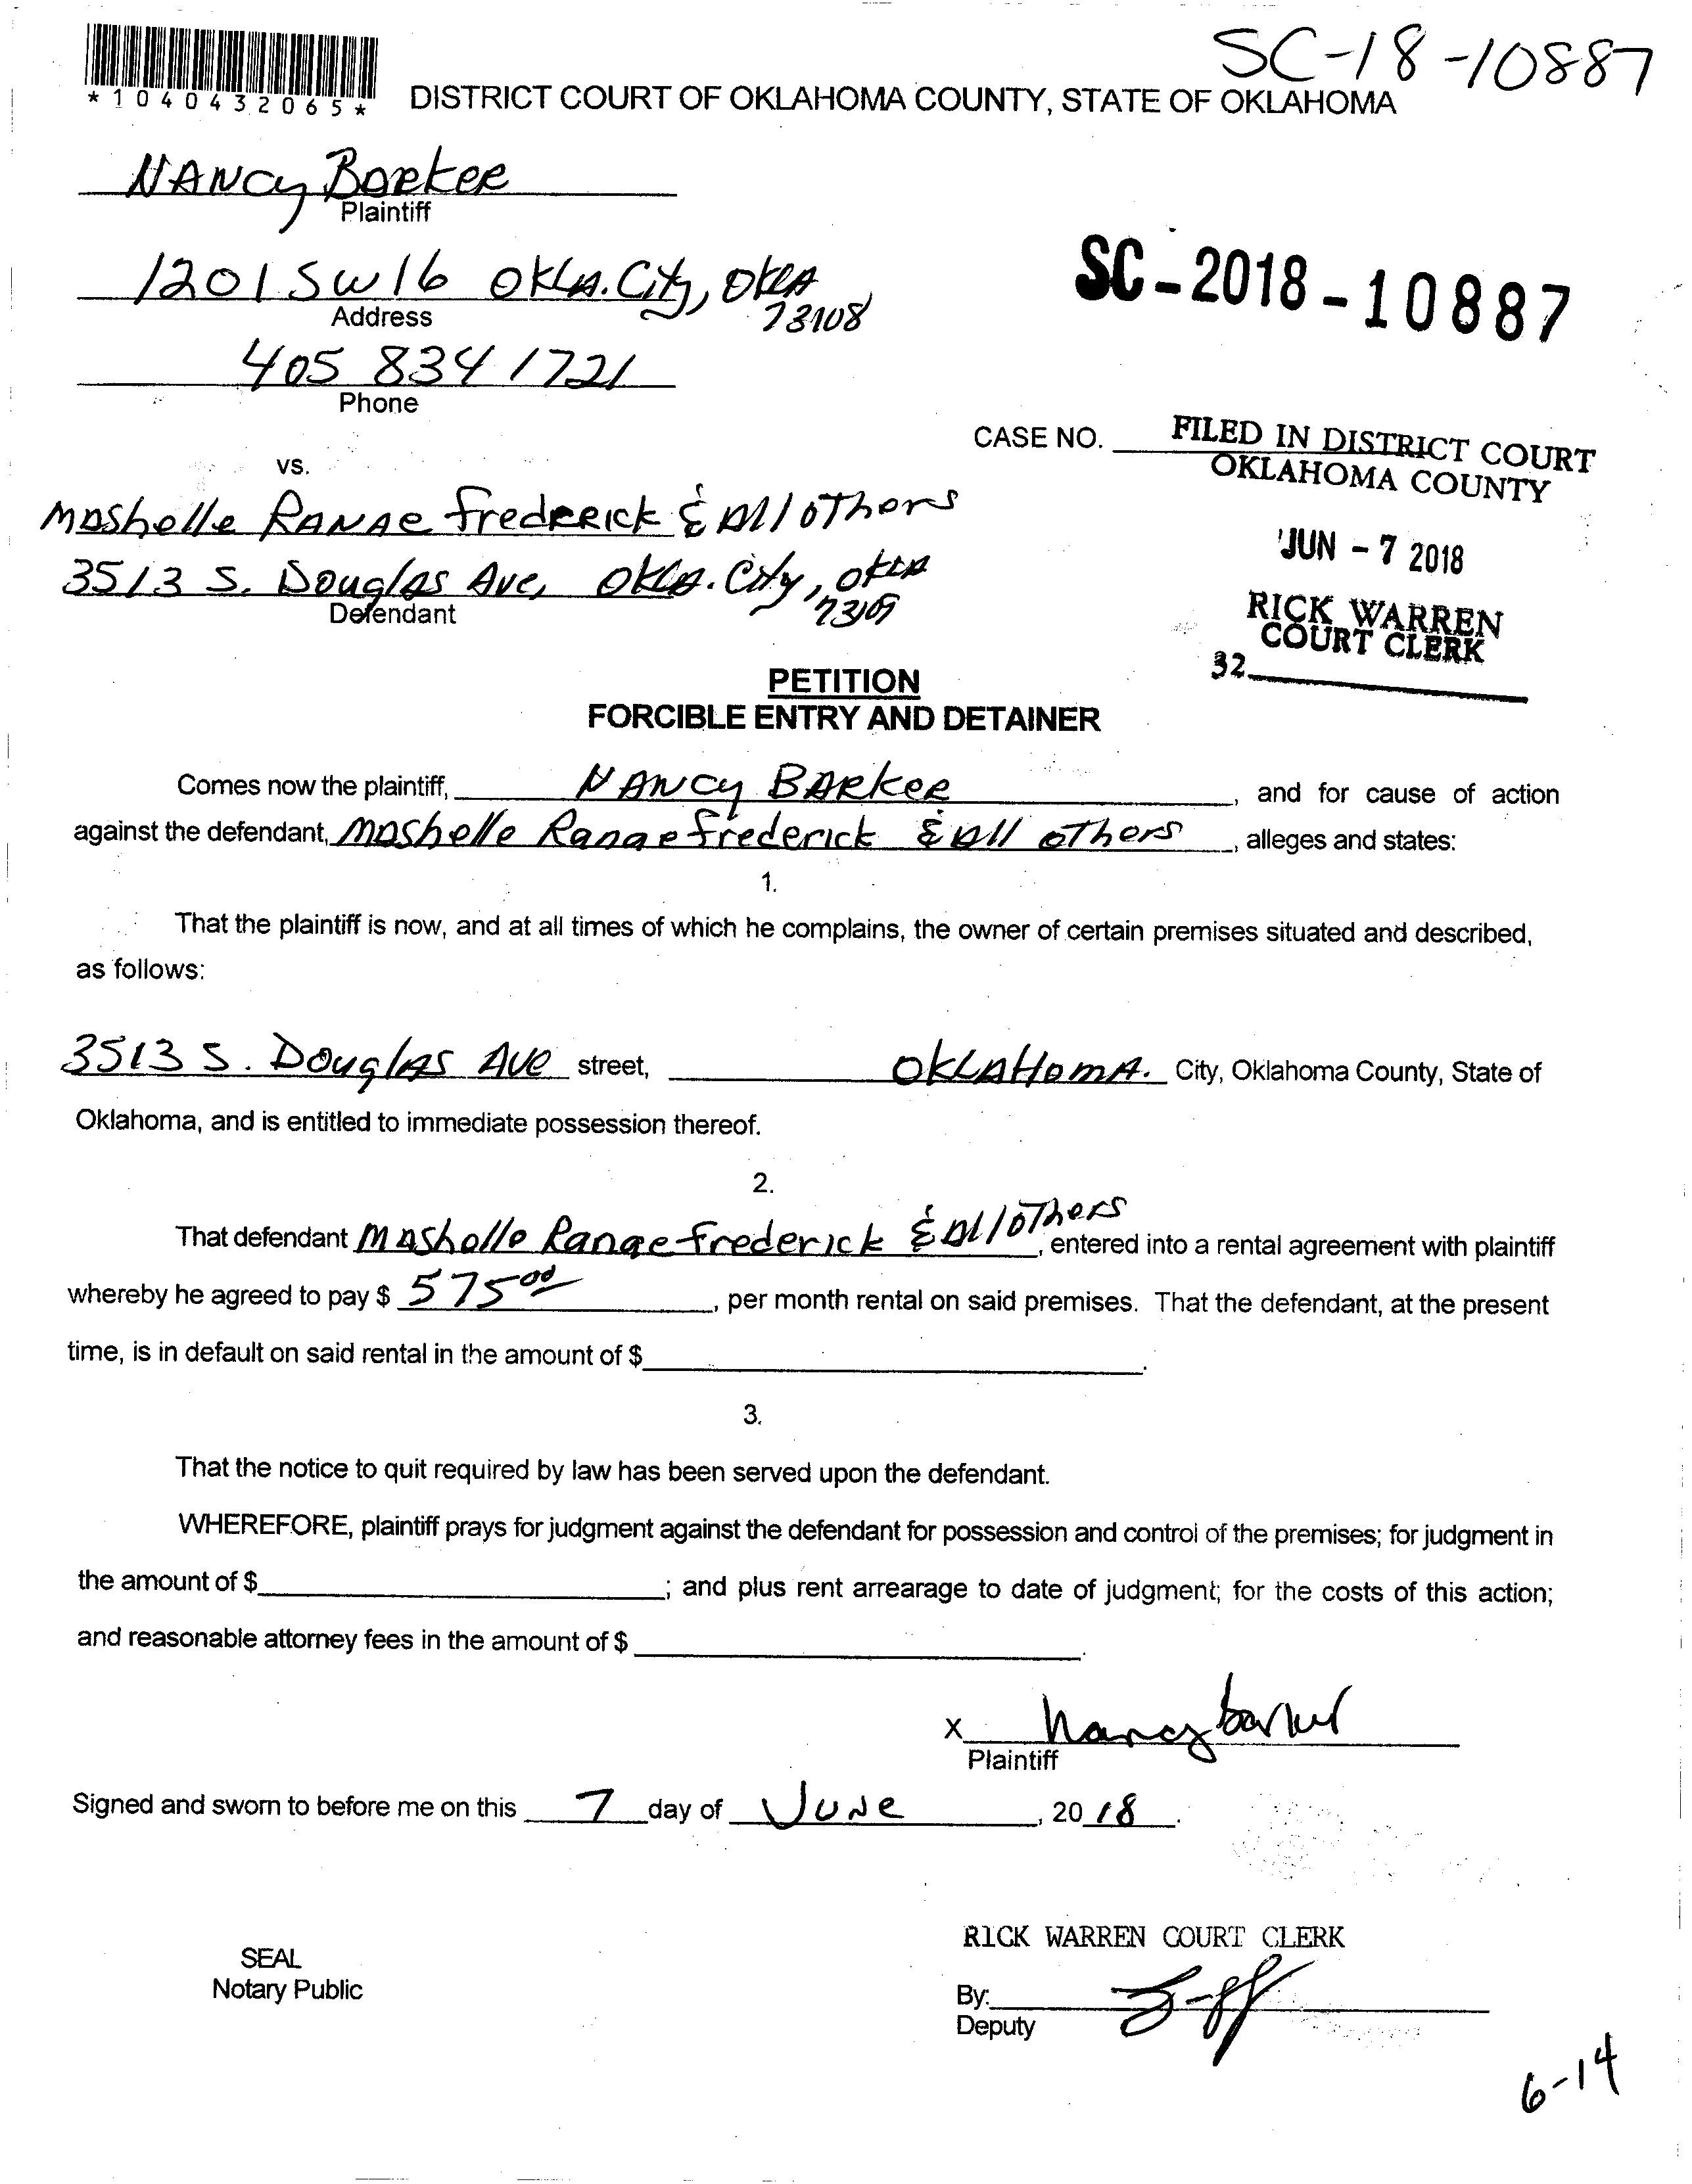 SC-18-10887
*1040432065*
DISTRICT COURT OF OKLAHOMA COUNTY, STATE OF OKLAHOMA
NANCY BARKER
Plaintiff
1201 SW 16 OKLA. City, OKLA
73108
Address
SC-2018-10887
405 834 1721
Phone
CASE NO.
FILED IN DISTRICT COURT
OKLAHOMA COUNTY
vs.
Mashelle RANAE Frederick & All others
JUN - 7 2018
3513 S. Douglas Ave, OKLA. City, OKLA
73109
Defendant
RICK WARREN
COURT CLERK
32
PETITION
FORCIBLE ENTRY AND DETAINER
Comes now the plaintiff, NANCY BARKER, and for cause of action
against the defendant, Mashelle Ranae Frederick & All others, alleges and states:
1.
That the plaintiff is now, and at all times of which he complains, the owner of certain premises situated and described,
as follows:
3513 S. Douglas Ave street, OKLAHOMA. City, Oklahoma County, State of
Oklahoma, and is entitled to immediate possession thereof.
2.
That defendant Mashelle Ranae Frederick & All others, entered into a rental agreement with plaintiff
whereby he agreed to pay $ 575 00, per month rental on said premises. That the defendant, at the present
time, is in default on said rental in the amount of $.
3.
That the notice to quit required by law has been served upon the defendant.
WHEREFORE, plaintiff prays for judgment against the defendant for possession and control of the premises; for judgment in
the amount of $; and plus rent arrearage to date of judgment; for the costs of this action;
and reasonable attorney fees in the amount of $.
X Nancy barker
Plaintiff
Signed and sworn to before me on this 7 day of June, 2018.
RICK WARREN COURT CLERK
SEAL
Notary Public
By:
Deputy
6-14